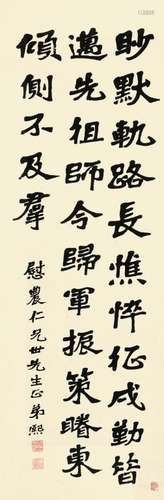 眇默軌路長憔悴征戍勤昔
邁先徂師今歸軍振策睠東
傾側不及羣
慰農仁兄世先生正弟熙